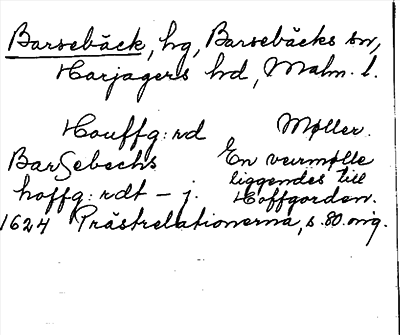 Barsebäck, hg, Barsebäcks sn,
Harjagers hd, Malm. l.
Houffg: rd Møller.
BarSebechs En veirmølle
hoffg: rdt – j. liggendes till
Hoffgorden.
1624 Prästrelationerna, s. 80. orig.